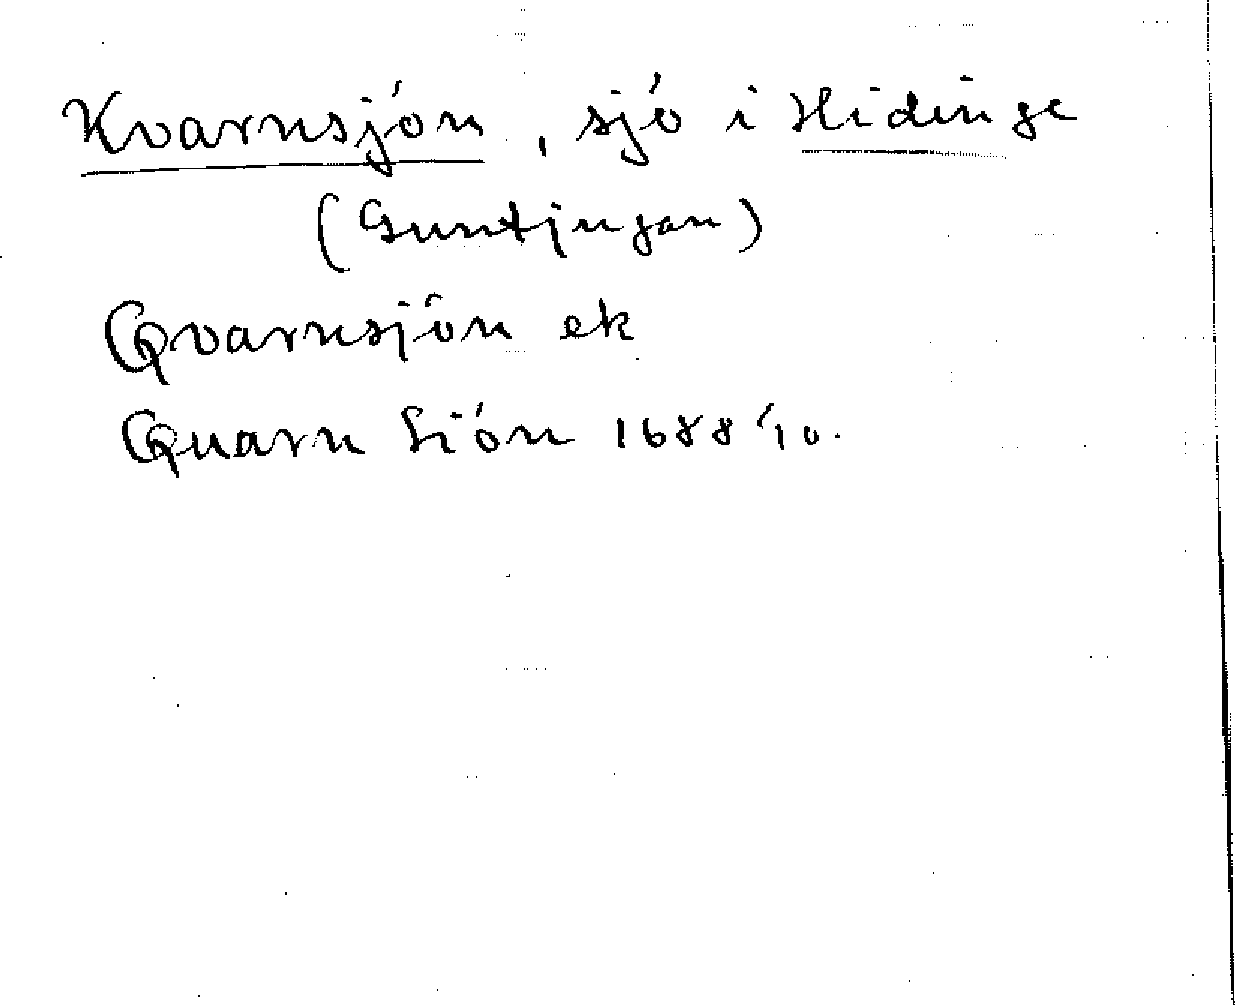 Kvarnsjön, sjö i Hidinge
(Suntjugan)
Qvarnsjön ek
Quarn Siön 1688 10.